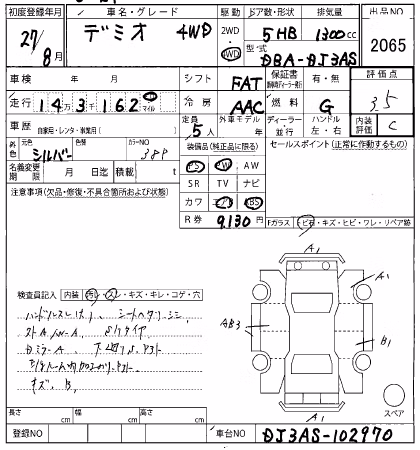 初度登録年月 車名・グレード 駆動 ドア数・形状 排気量 出品NO
27/8月 デミオ 4WD 2WD 4WD 5HB 1300cc 2065
型式 DBA-DJ3AS
車検 年 月 シフト FAT 保証書 有・無 評価点
走行 143162 km マイル 冷房 AAC 燃料 G 3.5
車歴 自家用・レンタ・事業用( ) 定員 5人 外車モデル 年 ディーラー・並行 ハンドル 左・右 内装評価 C
外色 元色 シルバー 色替 カラーNO 38P 装備品(純正品に限る) セールスポイント(正常に作動するもの)
名義変更期限 月 日迄 積載 t
PS PW AW
SR TV ナビ
カワ エアB ABS
R券 9,130円
注意事項(欠品・修復・不具合箇所および状態)
Fガラス トビ石・キズ・ヒビ・ワレ・リペア跡
A1
A1
AB3
B1
A1
スペア
検査員記入 内装 汚レ・スレ・キズ・キレ・コゲ・穴
ハンドルスレ シートヘタリ シミ
キズ B
長さ cm 幅 cm 高さ cm
登録NO 車台NO DJ3AS-102970